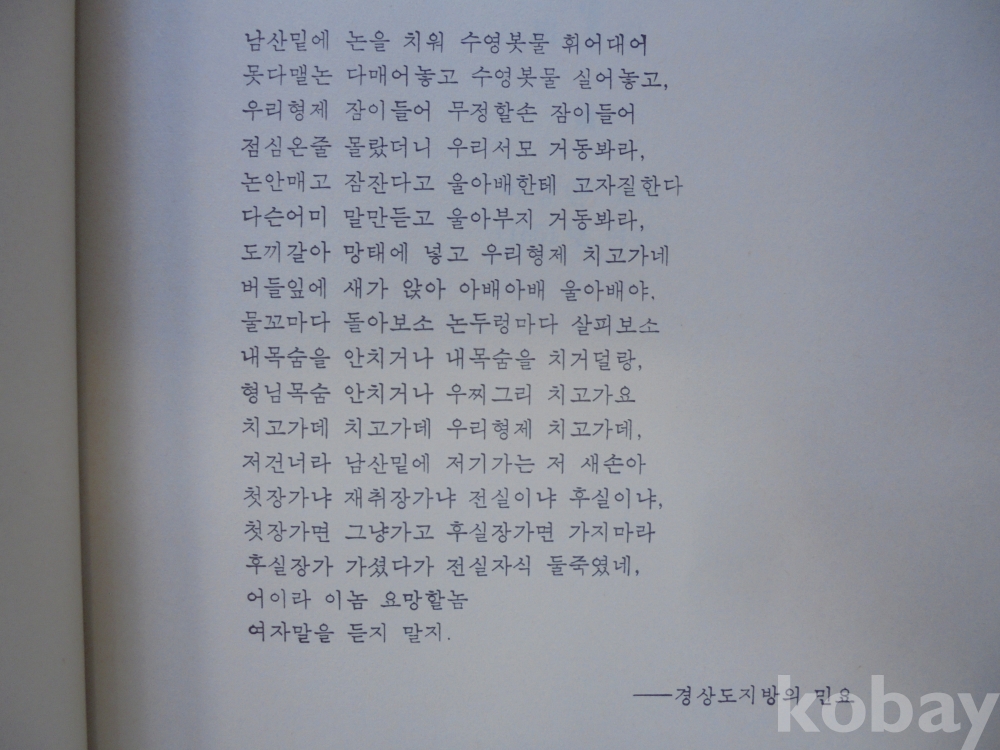 남산밑에 논을 치워 수영봇물 휘어대어
못다맬논 다매어놓고 수영봇물 실어놓고,
우리형제 잠이들어 무정할손 잠이들어
점심온줄 몰랐더니 우리서모 거동봐라,
논안매고 잠잔다고 울아배한테 고자질한다
다슨어미 말만듣고 울아부지 거동봐라,
도끼갈아 망태에 넣고 우리형제 치고가네
버들잎에 새가 앉아 아배아배 울아배야,
물꼬마다 돌아보소 논두렁마다 살피보소
내목숨을 안치거나 내목숨을 치거덜랑,
형님목숨 안치거나 우찌그리 치고가요
치고가데 치고가데 우리형제 치고가데,
저건너라 남산밑에 저기가는 저 새손아
첫장가냐 재취장가냐 전실이냐 후실이냐,
첫장가면 그냥가고 후실장가면 가지마라
후실장가 가셨다가 전실자식 둘죽였네,
어이라 이놈 요망할놈
여자말을 듣지 말지.
──경상도지방의 민요
kobay